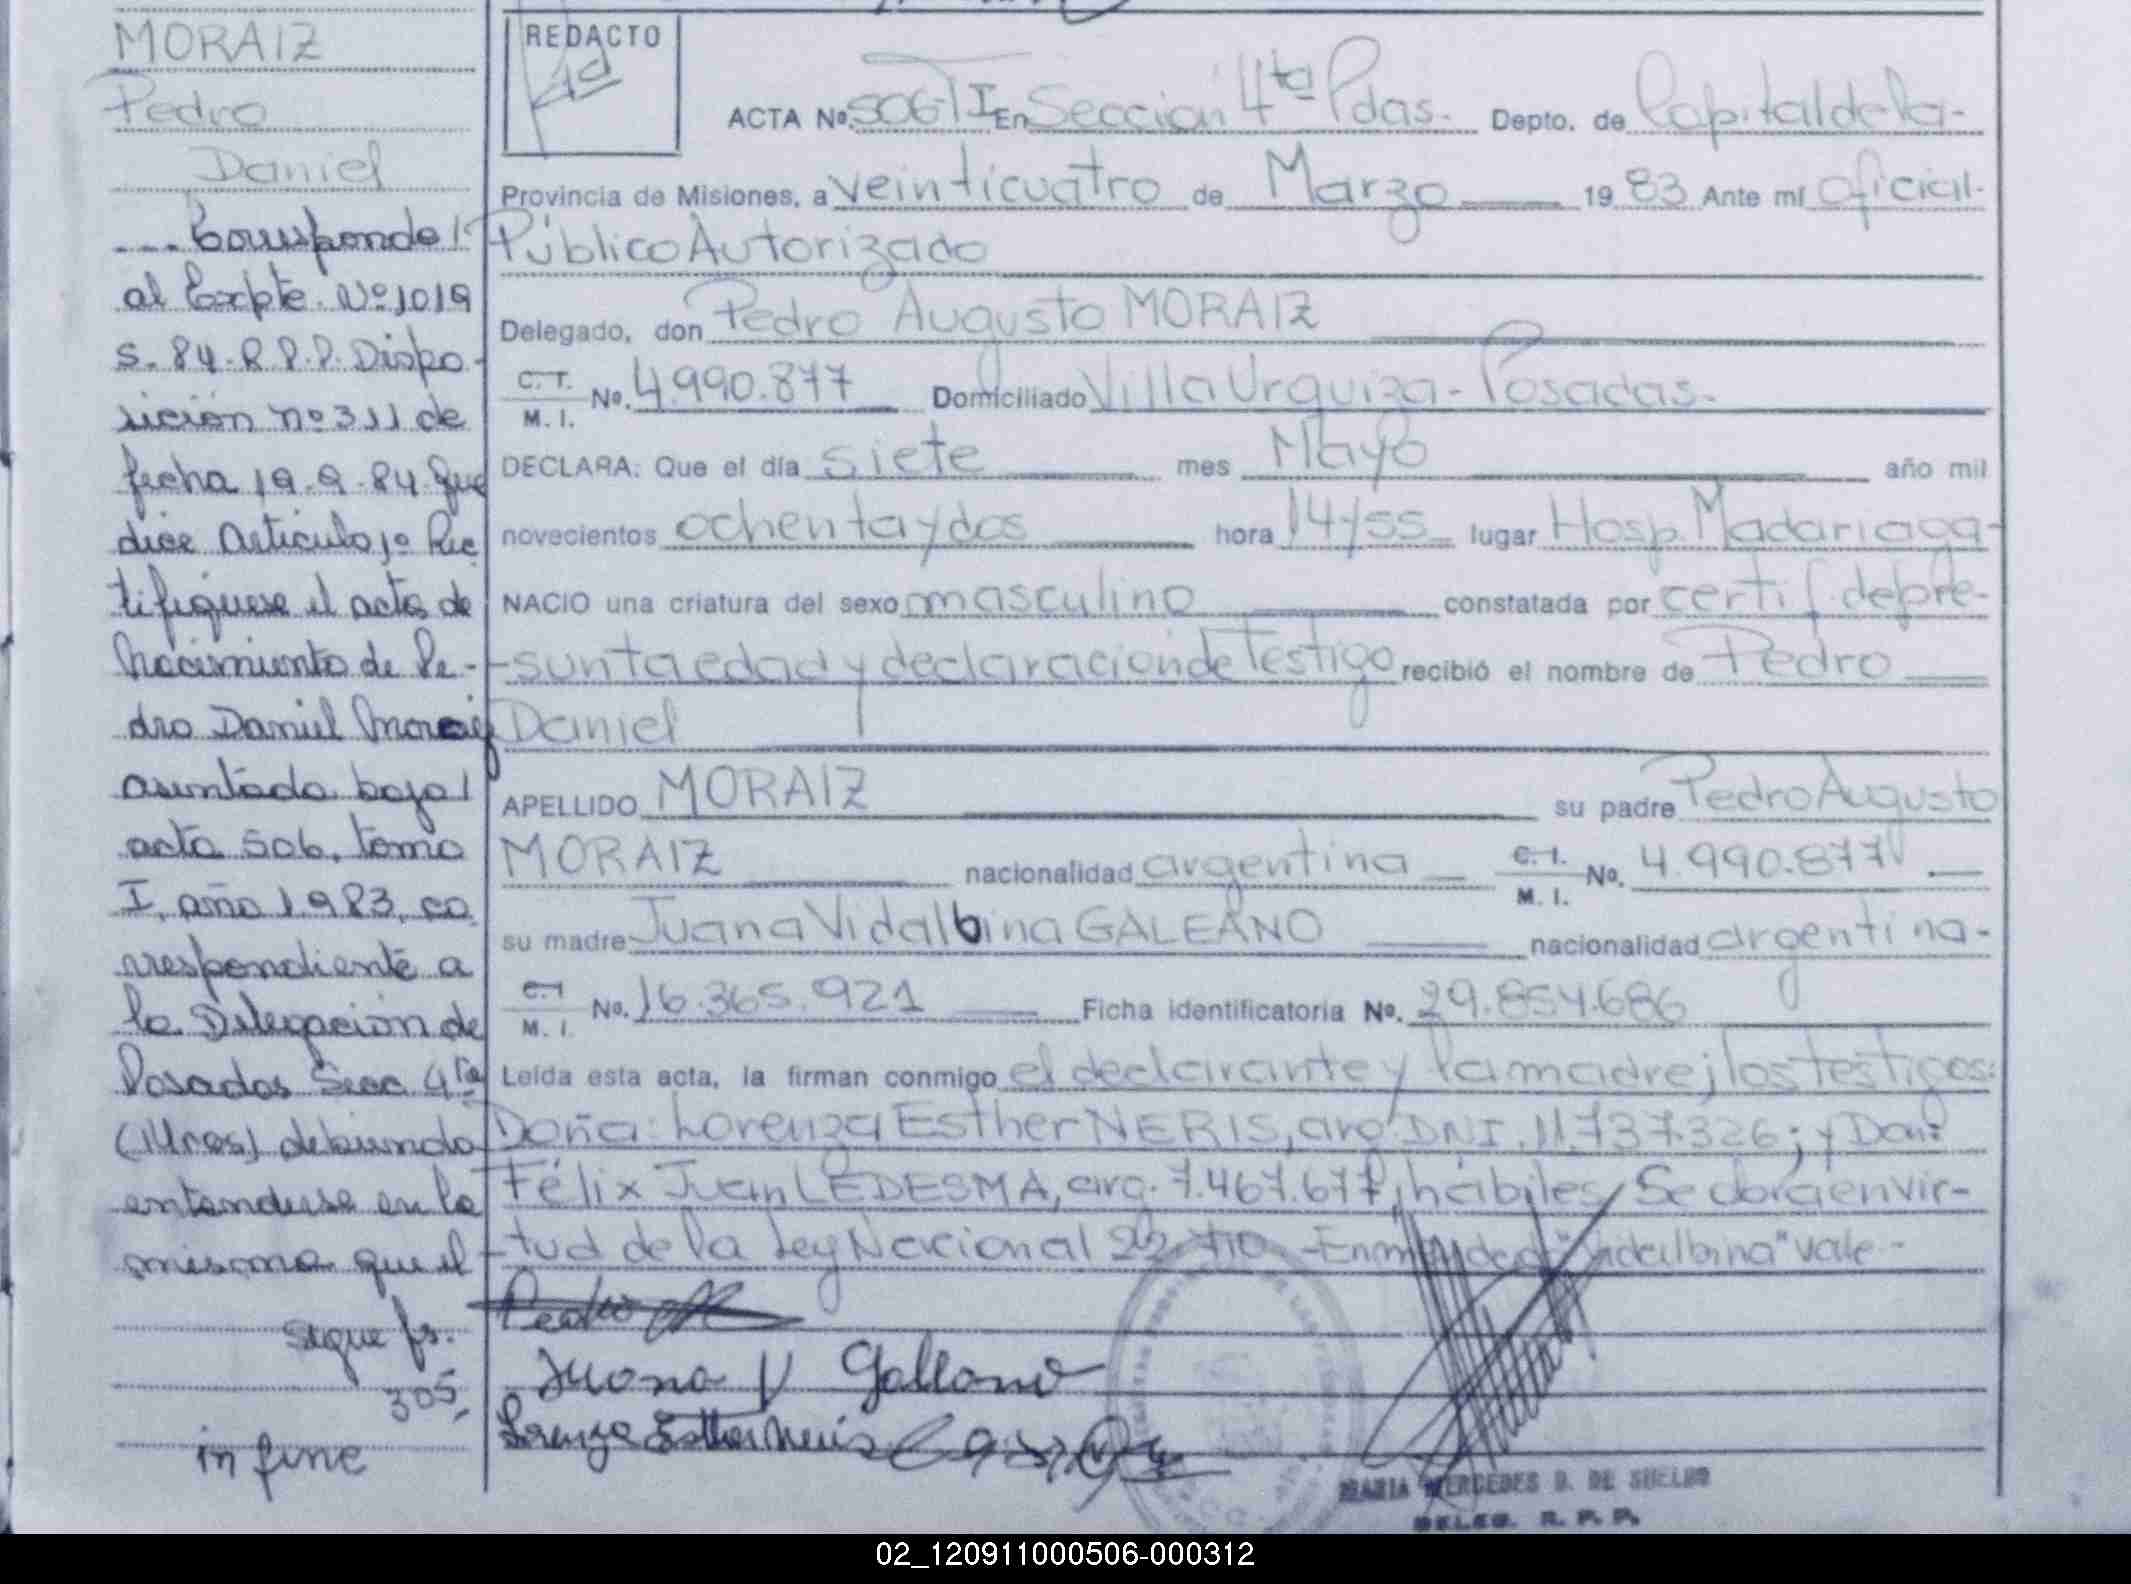 MORAIZ
Pedro
Daniel
Corresponde
al Expte. Nº 1019
s. 84. R.P.P. Dispo-
sición nº 311 de
fecha 19.9.84 que
dice Articulo 1º Rec
tifiquese el acta de
Nacimiento de Pe-
dro Daniel Moraiz
asentada bajo
acta 506, tomo
I, año 1.983, co
rrespondiente a
la Delegación de
Posadas Secc 4ta
debiendo
entenderse en la
misma que el
sigue fs.
305,
in fine
REDACTO
ACTA Nº. 506-T I En Seccion 4ta Pdas. Depto. de Capital de la-
Provincia de Misiones, a veinticuatro de Marzo 19 83 Ante mí oficial-
Público Autorizado
Delegado, don Pedro Augusto MORAIZ
C.T. M.I. Nº. 4.990.877 Domiciliado Villa Urquiza - Posadas.
DECLARA: Que el día siete mes Mayo año mil
novecientos ochenta y dos hora 14/55 lugar Hosp. Madariaga-
NACIO una criatura del sexo masculino constatada por certif. de pre-
-sunta edad y declaracion de Testigo recibió el nombre de Pedro
Daniel
APELLIDO MORAIZ su padre Pedro Augusto
MORAIZ nacionalidad argentina C.I. M.I. Nº. 4.990.877
su madre Juana Vidalbina GALEANO nacionalidad argentina-
C.I. M.I. Nº. 16.365.921 Ficha identificatoria Nº. 29.854.686
Leída esta acta, la firman conmigo el declarante y la madre; los testigos:
Doña: Lorenza Esther NERIS, arg. DNI. 11.737.326; y Don:
Félix Juan LEDESMA, arg. 7.467.677, hábiles, Se labra en vir-
-tud de la Ley Nacional 22.410 - Enmendado: "Vidalbina" vale -
Pedro
Juana V Galeano
Lorenza Esther Neris
MARIA MERCEDES D. DE SUELDO
DELEG. R. P. P.
02_120911000506-000312